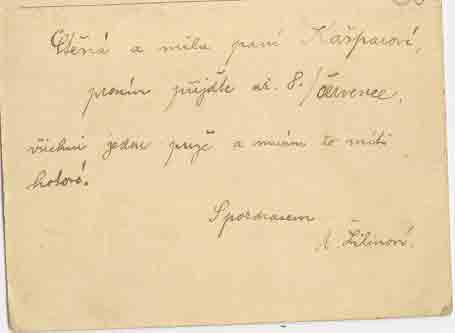 Ctěná a milá paní Kašparová,
prosím přijďte až. 8./července.
všichni jedou pryč a musím to míti
hotové.
S pozdravem
Šilinová.